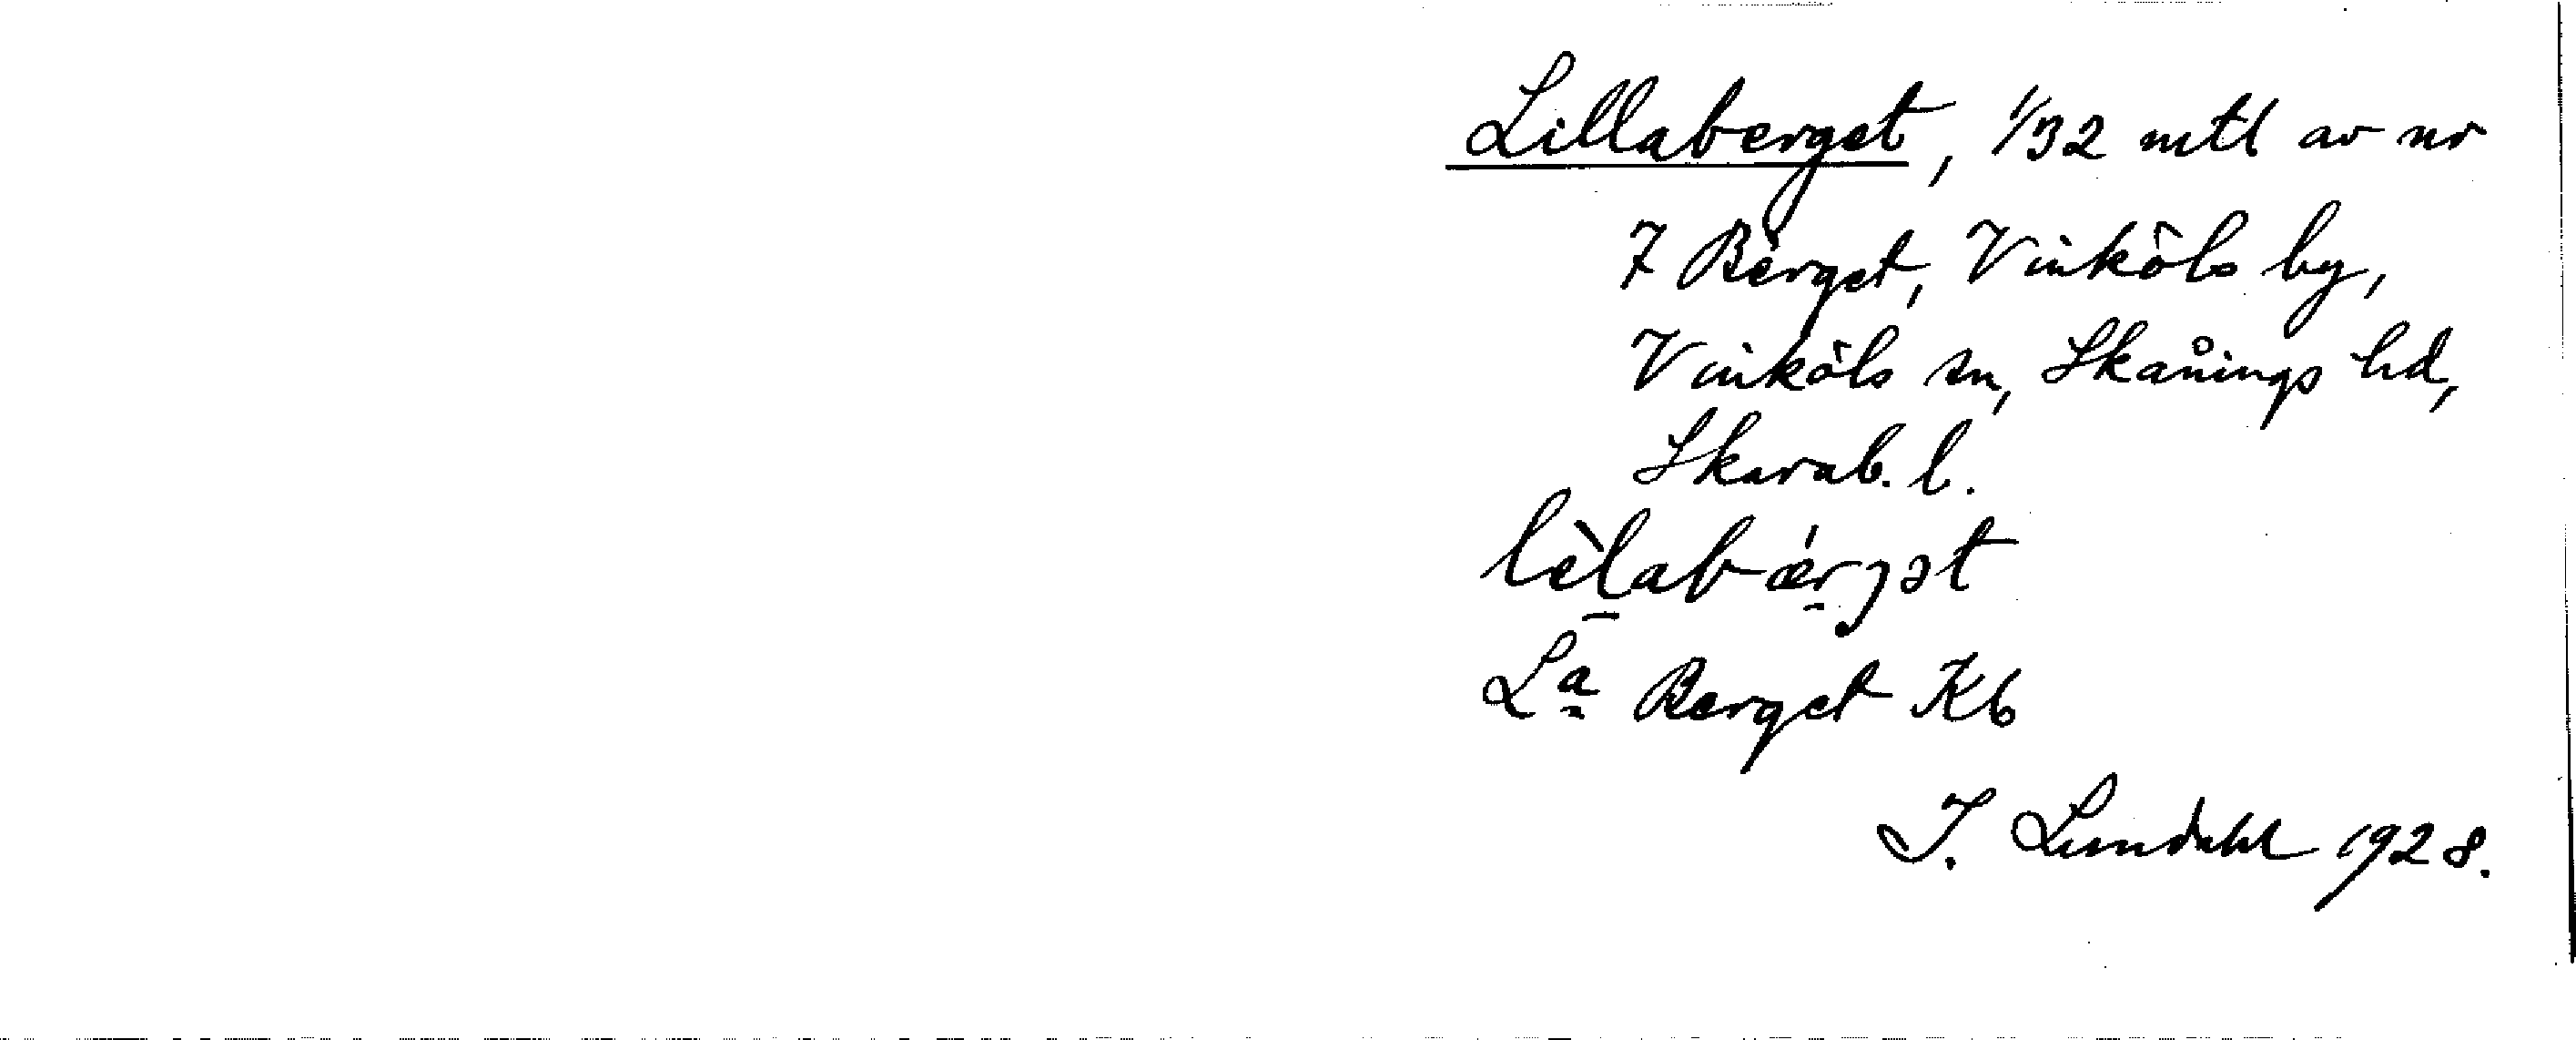 Lillaberget, 1/32 mtl av nr
7 Berget, Vinköls by,
Vinköls sn, Skånings hd,
Skarab. l.
lèlabǽrjət
La Berget Kb
I. Lundahl 1928.